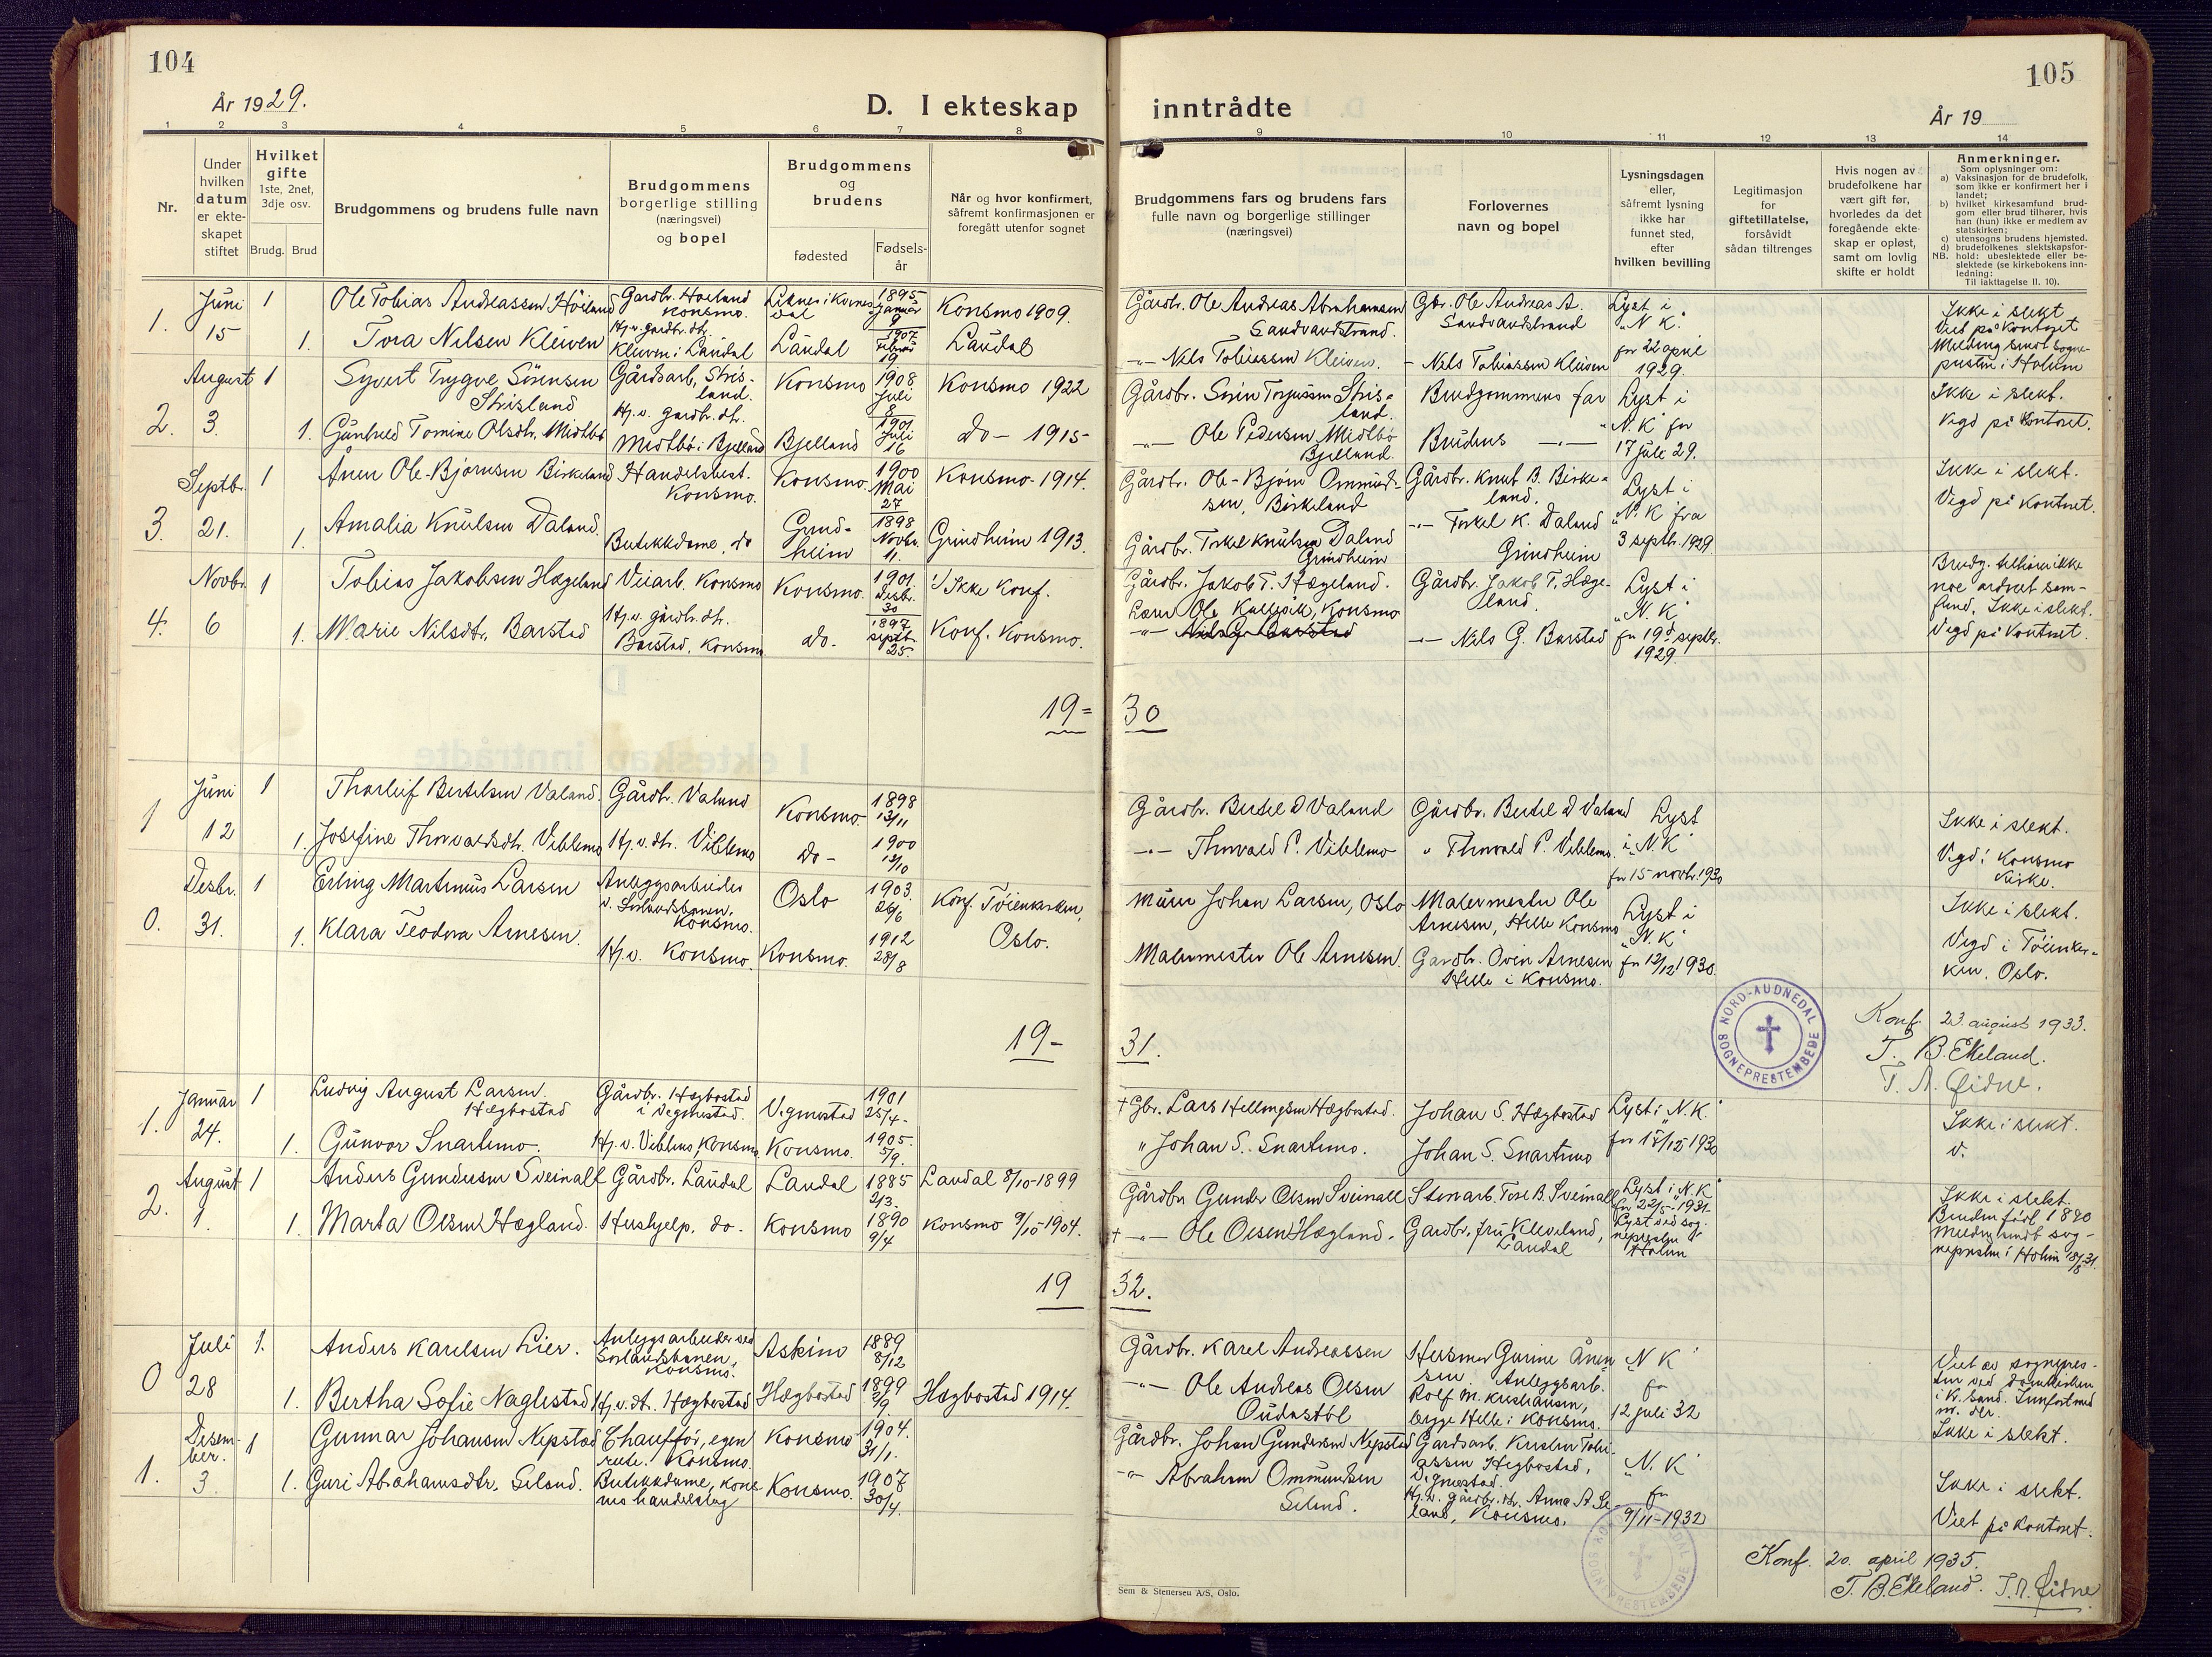 104
År 1929.
D. I ekteskap
1 2 3 4 5 6 7 8
Nr.
Under
hvilken
datum
er ekte-
skapet
stiftet
Hvilket
gifte
1ste, 2net,
3dje osv.
Brudg. Brud
Brudgommens og brudens fulle navn
Brudgommens
borgerlige stilling
(næringsvei)
og bopel
Brudgommens
og
brudens
fødested
Fødsels-
år
Når og hvor konfirmert,
såfremt konfirmasjonen er
foregått utenfor sognet
1.
Juni
15
1
Ole Tobias Andreassen Höiland
Gardbr. Høiland
Konsmo.
1895
Januar
9
Konsmo 1909.
1.
Tora Nilsen Kleiven
Hj.v. gardbr. dtr.
Kleiven i Laudal
Laudal
1907
Februar
19
Laudal
2.
August
3.
1
Syvert Trygve Sörensen
Strisland
Gårdsarb, Stris-
land.
Konsmo
1908
Juli
8
Konsmo 1922
1.
Gunhild Tomine Olsdtr. Midtbö
Hj.v. gardbr. dtr.
Midtbö i Bjelland
Bjelland
1901
Juli
16
do - 1915
3.
Septbr.
21.
1
Ånen Ole-Bjørnsen Birkeland
Handelsbest.
Konsmo.
Konsmo.
1900
Mai
27
Konsmo. 1914.
1.
Amalia Knutsen Daland.
Butikkdame, do
Grind-
heim
1898
Novbr.
11.
Grindheim 1913.
4.
Novbr.
6
1
Tobias Jakobsen Hægeland
Veiarb. Konsmo
Konsmo.
1901
Desbr.
30
Ikke Konf.
1.
Marie Nilsdtr. Barstad
Hj.v. gårdbr. dtr.
Barstad, Konsmo
do.
1897
septb.
25.
Konf. Konsmo.
19=
1
Juni
12
1
Thorleif Bertelsen Valand.
Gårdbr. Valand
Konsmo.
1898
13/11
1.
Josefine Thorvaldsdtr. Viblemo
Hj.v. dtr. Viblemo
do -
1900
13/10
0.
Desbr.
31.
1
Erling Martinius Larsen
Anleggsarbeider
v. Sørlandsbanen,
Konsmo.
Oslo
1903.
26/6
Konf. Töienkirken,
Oslo.
1.
Klara Teodora Arnesen.
Hj.v. Konsmo.
Konsmo.
1912
28/8
19-
1.
Januar
24.
1
Ludvig August Larsen
Hægbostad
Gårdbr. Hægbostad
i Vegmostad.
Vigmostad
1901
25/4-
1.
Gunvor Snartemo.
Hj.v. Viblemo, Konsmo
Konsmo.
1905.
5/9.
2.
August
1.
1
Anders Gundersen Sveinall
Gårdbr. Laudal
Laudal
1885
2/3.
Laudal 8/10-1899
1.
Marta Olsen Hægland.
Hushjelp. do.
Konsmo
1890
9/4
Konsmo 9/10-1904.
19
0
Juli
28
1.
Anders Karelsen Lier.
Anleggsarbeider ved
Sørlandsbanen,
Konsmo.
Askim
1889
8/12
1.
Bertha Sofie Naglestad
Hj.v. dt. Hægbostad
Hægbostad
1899
Hægbostad 1914.
1.
Desem-
ber.
3.
1
Gunnar Johansen Nepstad
Chaufför, egen
rute. Konsmo.
Konsmo
1904.
31/1.
1.
Guri Abrahamsdtr. Seland.
Butikkdame, Kons-
mo handelslag
Konsmo.
1907
30/4.
105
inntrådte
År 19
9 10 11 12 13 14
Brudgommens fars og brudens fars
fulle navn og borgerlige stillinger
(næringsvei)
Forlovernes
navn og bopel
Lysningsdagen
eller,
såfremt lysning
ikke har
funnet sted,
efter
hvilken bevilling
Legitimasjon
for
giftetillatelse,
forsåvidt
sådan tiltrenges
Hvis nogen av
brudefolkene har
vært gift før,
hvorledes da det
foregående ekte-
skap er opløst,
samt om lovlig
skifte er holdt
Anmerkninger.
Som oplysninger om:
a) Vaksinasjon for de brudefolk,
som ikke er konfirmert her i
landet;
b) hvilket kirkesamfund brud-
gom eller brud tilhører, hvis
han (hun) ikke er medlem av
statskirken;
c) utensogns brudens hjemsted.
d) brudefolkenes slektskapsfor-
NB. hold: ubeslektede eller be-
slektede (se kirkebokens inn-
ledning:
Til iakttagelse II. 10).
Gårdbr. Ole Andreas Abrahamsen
Sandvandstrand.
Gbr. Ole Andreas A.
Sandvandstrand
Lyst i
"N.K."
fra 22 april
1929.
Ikke i slekt
Viet på Kontoret
Melding sendt sogne-
presten i Holum
-"- Nils Tobiassen Kleiven.
- Nils Tobiassen Kleiven
Gårdbr. Sørin Torjussen Stris-
land.
Brudgommens far
Lyst i
"N.K" fra
17 juli 29.
Ikke i slekt.
Vigd på Kontoret.
-"- Ole Pedersen Midtbö
Bjelland.
Brudens -"-
Gårdbr. Ole-Bjørn Ommund-
sen, Birkeland
Gårdbr. Knut B. Birke-
land.
Lyst i
"N.K fra
3 septb. 1929
Ikke i slekt.
Vigd på Kontoret.
Gårdbr. Torkel Knutsen Daland
Grindheim
-"- Torkel K. Daland
Grindheim
Gårdbr. Jakob T. Hægeland.
Gårdbr. Jakob T. Hæge-
land.
Lyst i
"N.K"
fra 19d septbr.
1929.
Brudg. tilhører ikke
noe ordnet sam-
fund. Ikke i slekt.
Vigd på Kontoret.
Lærer Ole Kallesik, Konsmo
-"- Nils G. Barstad
-"- Nils G. Barstad
30
Gårdbr. Bertel D Valand
Gårdbr. Bertel D Valand
Lyst
i "N.K"
fra 15 novbr. 1930
Ikke i slekt.
Vigd i Konsmo
Kirke.
-"- Thorvald P. Viblemo
" Thorvald P. Viblemo.
Murer Johan Larsen, Oslo
Malermester Ole
Arnesen, Helle Konsmo
Lyst i
"N.K"
fra 12/12 1930.
Ikke i slekt.
Vigd i Töienkir-
ken, Oslo.
Malermester Ole Arnesen.
Gardbr. Ovin Arnesen
Helle i Konsmo.
NORD-AUDNEDAL
SOGNEPRESTEMBEDE
Konf. 23. august 1933.
T. B. Ekeland.
T. A. Øidne.
31.
+ Gbr. Lars Hellongsen Hægbostad.
Johan S. Hægbostad
Lyst i "N.K"
fra 15/12 1930
Ikke i slekt.
v.
" Johan S. Snartemo.
Johan S. Snartemo
Gårdbr. Gunder Olsen Sveinall
Stenarb. Tore B. Sveinall
Lyst i "N.K"
fra 22/5-1931.
Lyst ved sog-
nepresten i
Holum
Ikke i slekt.
Bruden født 1890
Meldn. sendt sog-
nepresten i Holum 18/8 31.
+ -"- Ole Olsen Hægland.
Gardbr. fru Kleveland,
Laudal
32.
Gårdbr. Karel Andreassen
Husmor Gurine Ånen-
sen
"N K"
fra
12 juli 32
Viet av sognepres-
ten ved Domkirken
i Kr.sand. Innført med
nr. der.
Ikke i slekt.
-"- Ole Andreas Olsen
Oudastöl
Anleggsarb.
Rolf M. Kristiansen,
brygge Helle i Konsmo.
Gårdbr. Johan Gundersen Nepstad
Gardsarb. Kristen Tobi-
assen Hægbostad,
Vigmostad.
"N. K"
fra
9/11-1932
Ikke i slekt.
Viet på Kontoret.
-"- Abraham Ommundsen
Seland.
Hj.v. gårdbr. dtr. Anna A Se-
land, Konsmo.
Konf. 20. april 1935.
T. B. Ekeland. T. A. Øidne
Sem & Stenersen A/S, Oslo.